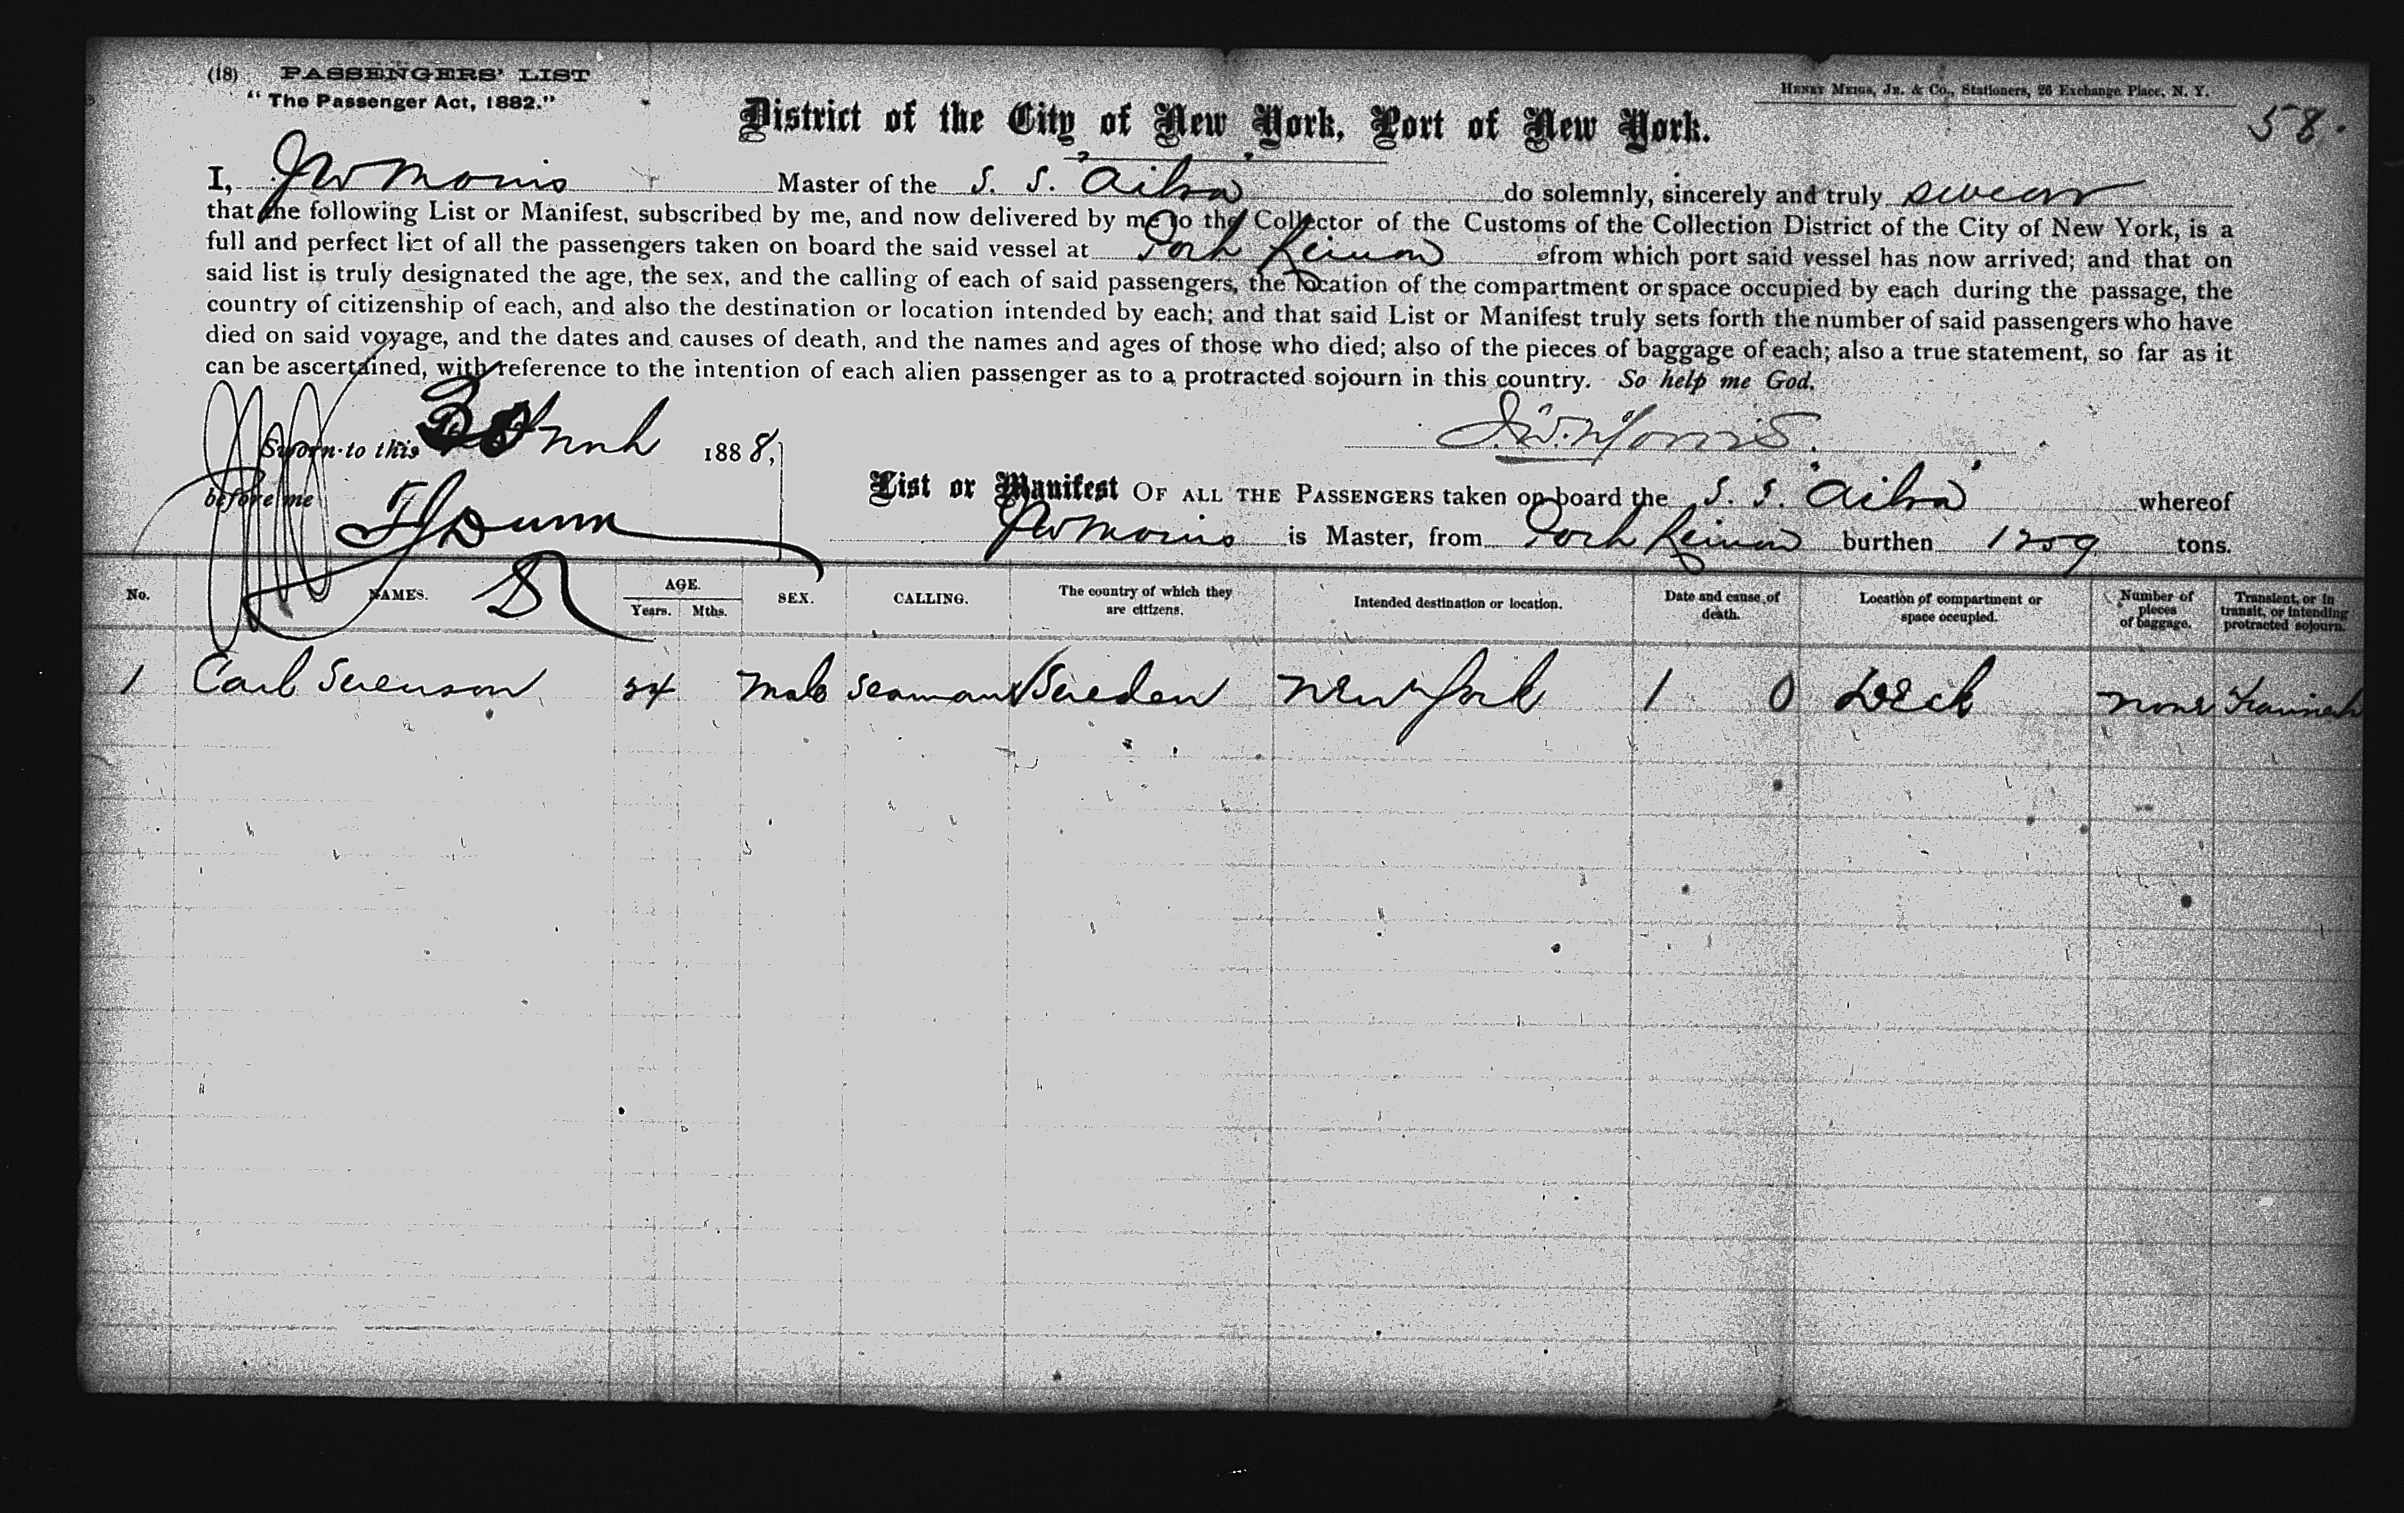 (18) PASSENGERS' LIST
"The Passenger Act, 1882."
HENRY MEIGS, JR. & Co., Stationers, 26 Exchange Place, N. Y.
58.
District of the City of New York, Port of New York.
I, J W Morris Master of the S. S. "Ailsa" do solemnly, sincerely and truly swear
that the following List or Manifest, subscribed by me, and now delivered by me to the Collector of the Customs of the Collection District of the City of New York, is a
full and perfect list of all the passengers taken on board the said vessel at Port from which port said vessel has now arrived; and that on
said list is truly designated the age, the sex, and the calling of each of said passengers, the location of the compartment or space occupied by each during the passage, the
country of citizenship of each, and also the destination or location intended by each; and that said List or Manifest truly sets forth the number of said passengers who have
died on said voyage, and the dates and causes of death, and the names and ages of those who died; also of the pieces of baggage of each; also a true statement, so far as it
can be ascertained, with reference to the intention of each alien passenger as to a protracted sojourn in this country. So help me God.
Sworn to this 1888,
J. W. Morris.
before me
List or Manifest OF ALL THE PASSENGERS taken on board the S. S. "Ailsa" whereof
J W Morris is Master, from Port burthen tons.
No. NAMES. AGE. Years. Mths. SEX. CALLING. The country of which they are citizens. Intended destination or location. Date and cause of death. Location of compartment or space occupied. Number of pieces of baggage. Transient, or in transit, or intending protracted sojourn.
1 Carl Serenson 24 Male Seaman Sweden New York 1 0 Deck None